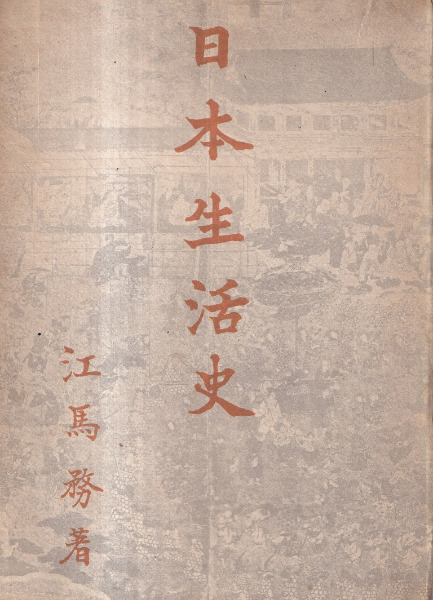 日本生活史
江馬務著